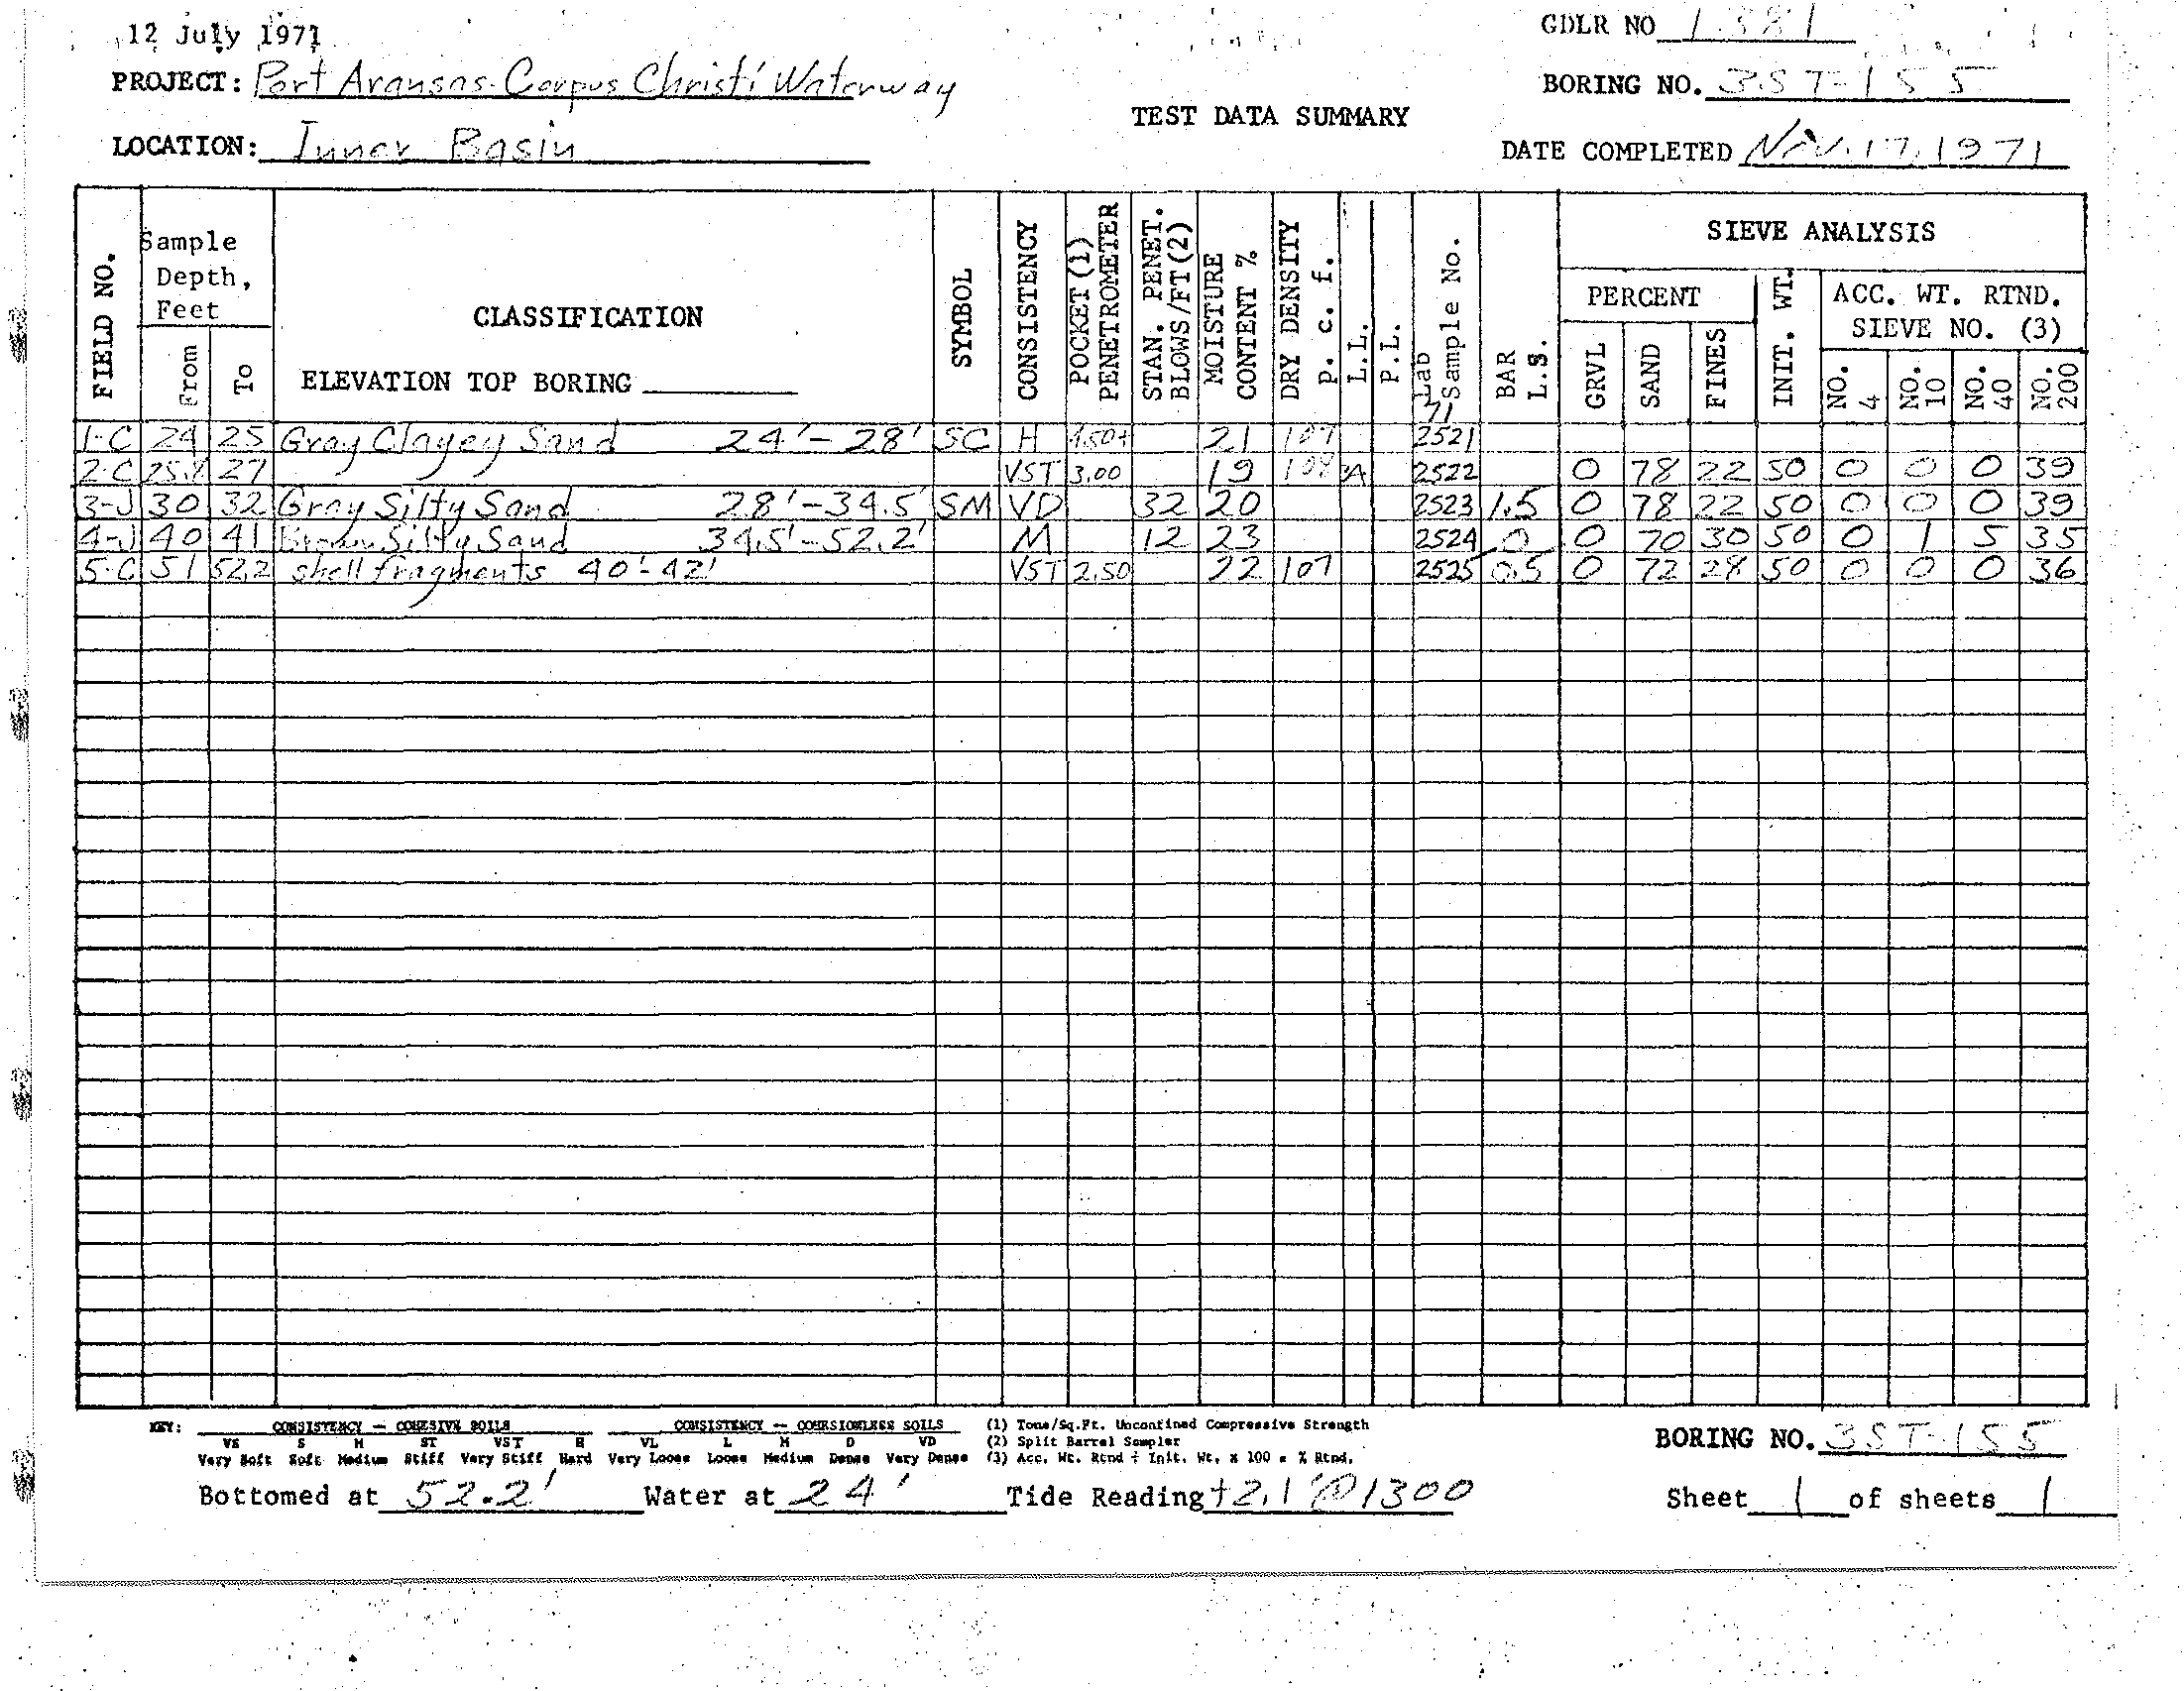 12 July 1971
GDLR NO 1381
PROJECT: Port Aransas-Corpus Christi Waterway
BORING NO. 3ST-155
TEST DATA SUMMARY
LOCATION: Inner Basin
DATE COMPLETED Nov. 17, 1971
FIELD NO. Sample Depth, Feet From To CLASSIFICATION ELEVATION TOP BORING SYMBOL CONSISTENCY POCKET (1) PENETROMETER STAN. PENET. BLOWS/FT (2) MOISTURE CONTENT % DRY DENSITY p. c. f. L.L. P.L. Lab Sample No. BAR L.S. SIEVE ANALYSIS PERCENT GRVL SAND FINES INIT. WT. ACC. WT. RTND. SIEVE NO. (3) NO. 4 NO. 10 NO. 40 NO. 200
71
1-C 24 25 Gray Clayey Sand 24'-28' SC H 4.50+ 21 107 2521
2-C 25.8 27 VST 3.00 19 108 2522 0 78 22 50 0 0 0 39
3-J 30 32 Gray Silty Sand 28'-34.5' SM VD 32 20 2523 1.5 0 78 22 50 0 0 0 39
4-J 40 41 Brown Silty Sand 34.5'-52.2' M 12 23 2524 0 0 70 30 50 0 1 5 35
5-C 51 52.2 shell fragments 40'-42' VST 2.50 22 107 2525 0.5 0 72 28 50 0 0 0 36
KEY: CONSISTENCY — COHESIVE SOILS CONSISTENCY — COHESIONLESS SOILS (1) Tons/Sq.Ft. Unconfined Compressive Strength
VS S M ST VST H VL L M D VD (2) Split Barrel Sampler
Very Soft Soft Medium Stiff Very Stiff Hard Very Loose Loose Medium Dense Very Dense (3) Acc. Wt. Rtnd ÷ Init. Wt. x 100 = % Rtnd.
BORING NO. 3ST-155
Bottomed at 52.2' Water at 24' Tide Reading +2.1' @ 1300 Sheet 1 of sheets 1